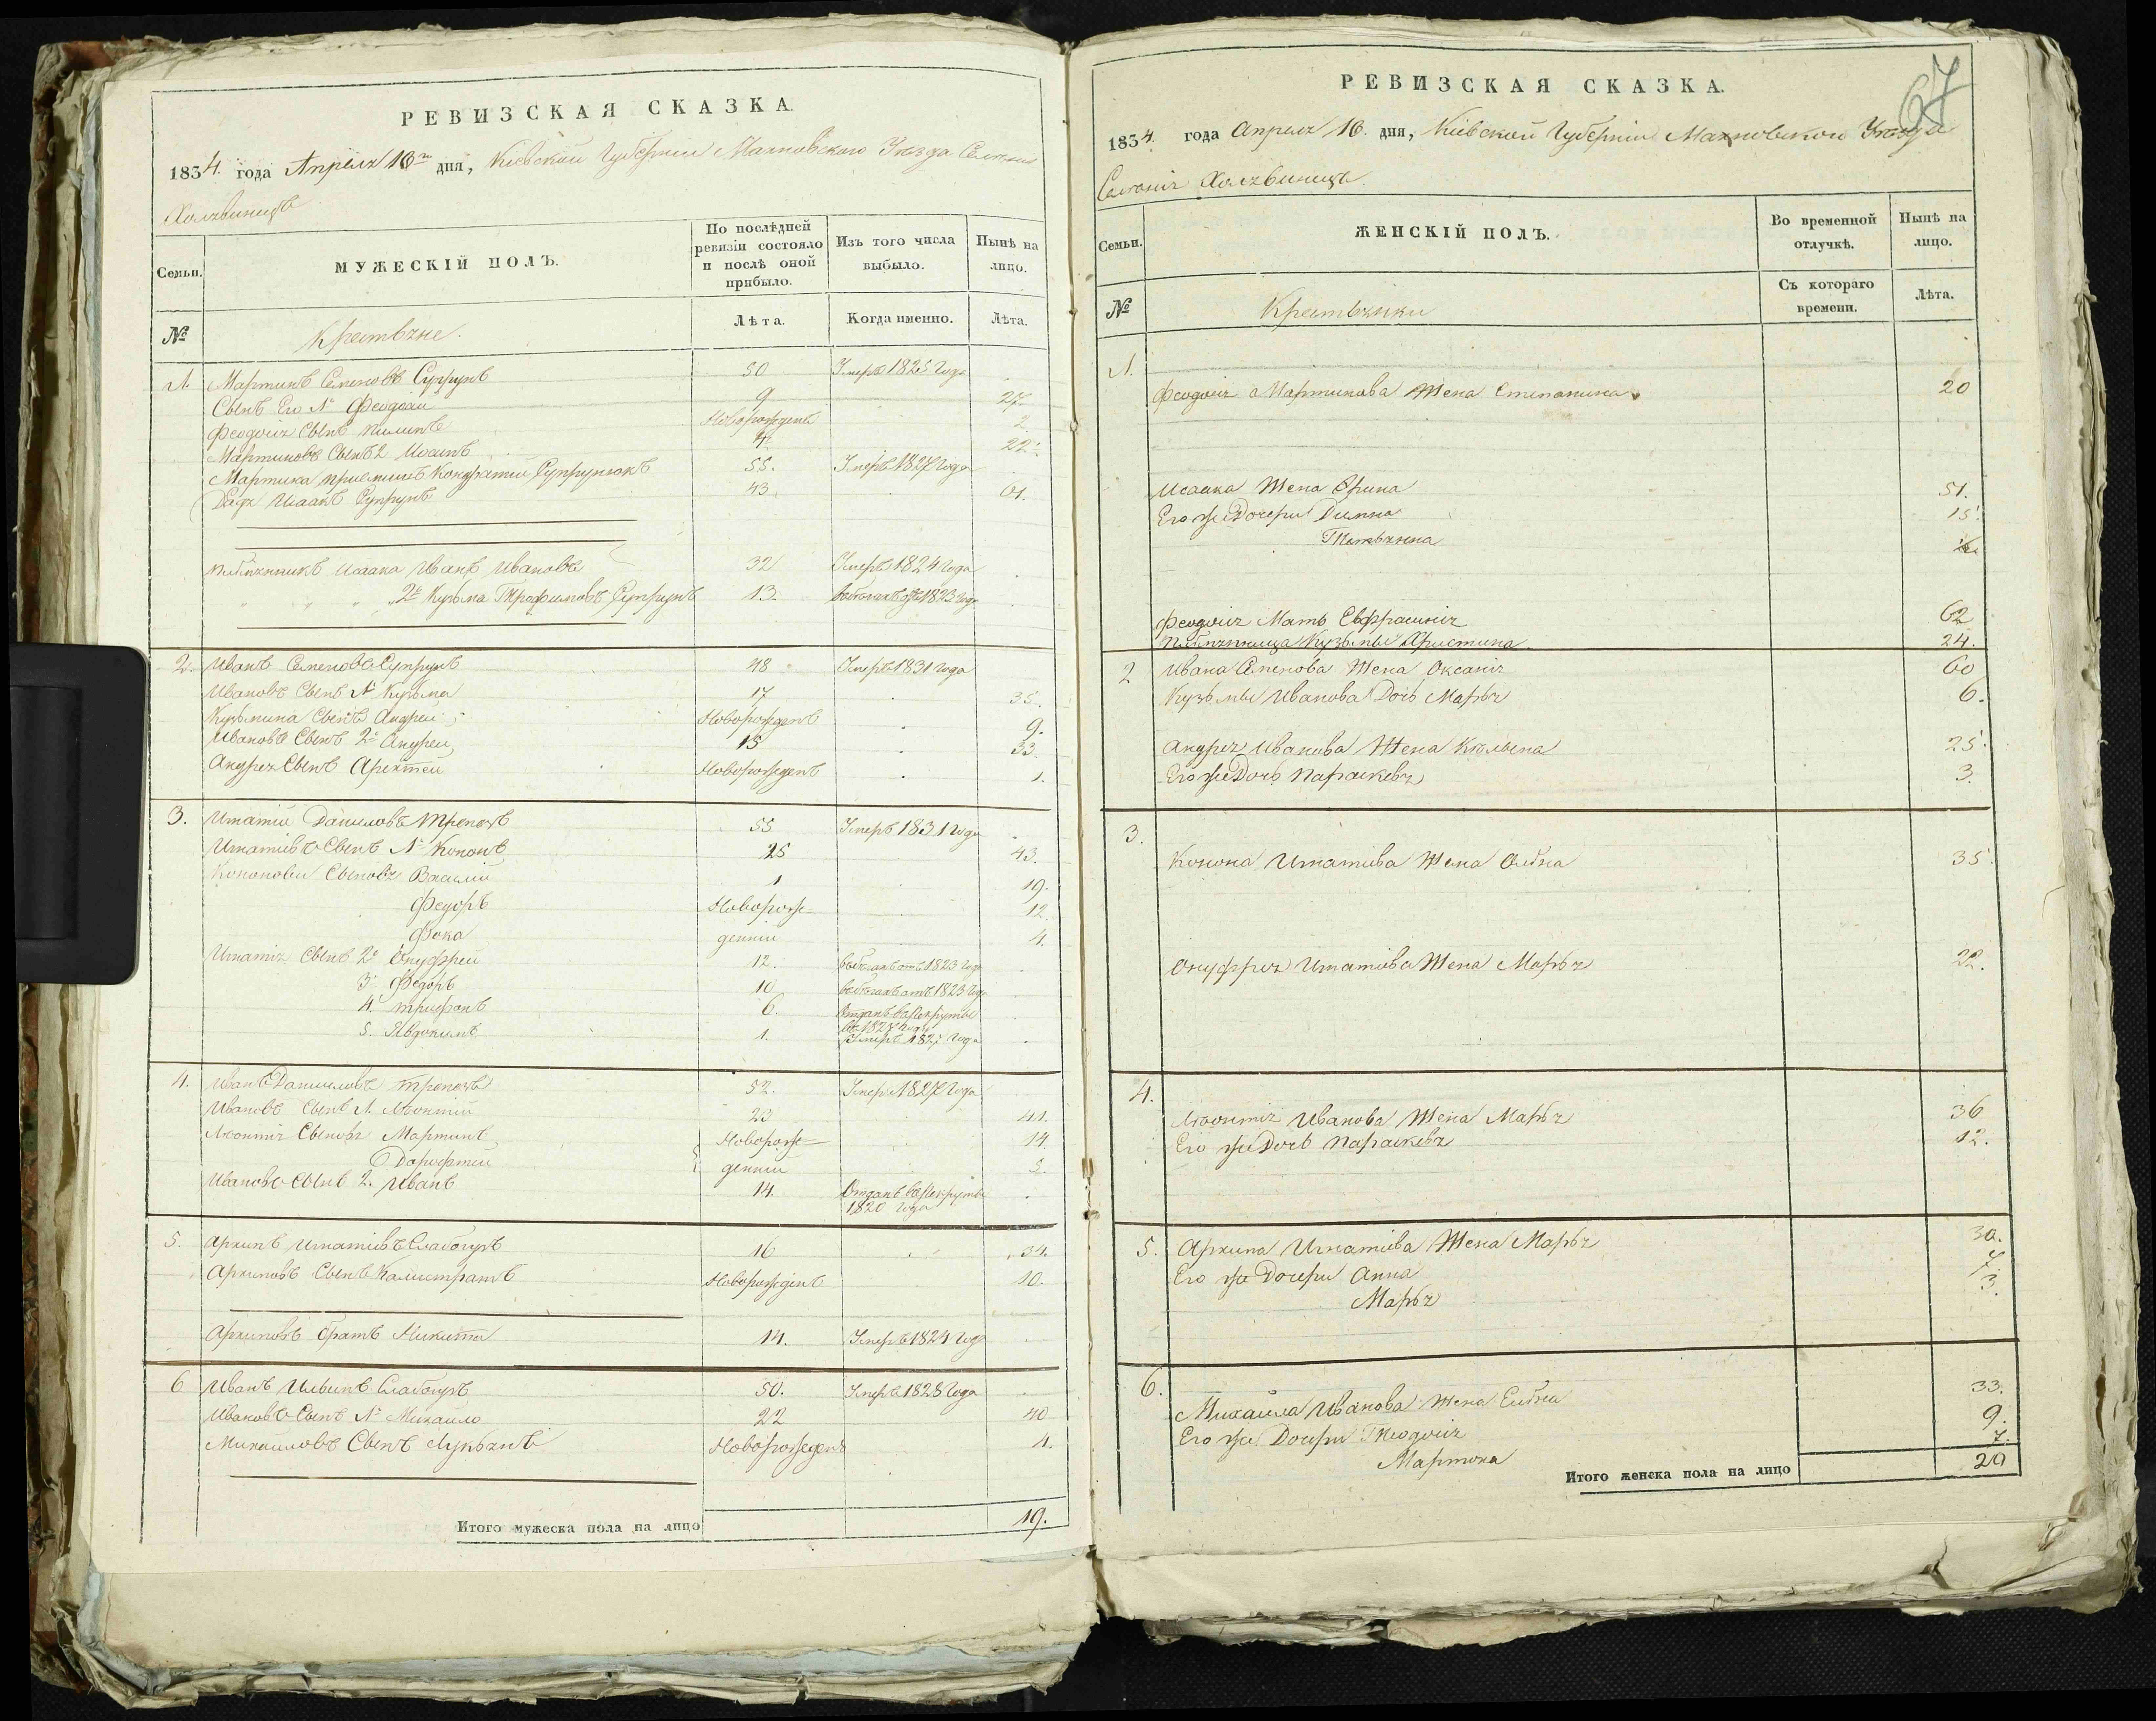 РЕВИЗСКАЯ СКАЗКА.
1834. года Апреля 16го дня, Кіевской Губерніи Махновского Уезда Селенія
Холявинецъ
Семьи.
МУЖЕСКІЙ ПОЛЪ.
По послѣдней ревизіи состояло и послѣ оной прибыло.
Изъ того числа выбыло.
Нынѣ на лицо.
№
Крестьяне.
Лѣта.
Когда именно.
Лѣта.
1. Мартинъ Семеновъ Супрунъ 50 Умеръ 1825 Года
Сынъ Его 1й Феодосій 9 27.
Феодосія Сынъ Пилипъ Новорожденъ 2
Мартиновъ Сынъ 2 Иосипъ 4 22.
Мартина приемишъ Кондратій Супрунюкъ 55. Умеръ 1827 Года
Дядя Исаакъ Супрунъ 43 61.
Племянникъ Исаака Иванъ Ивановъ 32 Умеръ 1824 Года
2й Кузьма Трофимовъ Супрунъ 13. въ бегахъ отъ 1823 Года
2. Иванъ Семеновъ Супрунъ 48 Умеръ 1831 Года
Ивановъ Сынъ 1й Кузьма 17 35.
Кузьмина Сынъ Андрей Новорожденъ 9.
Ивановъ Сынъ 2й Андрей 15 33.
Андрея Сынъ Арехтей Новорожденъ 1.
3. Игнатій Даниловъ 55 Умеръ 1831 Года
Игнатіевъ Сынъ 1й Кононъ 25 43.
Кононови Сыновя Василій 1 19.
Федоръ Новорож- 12.
Фока денніи 4.
Игнатія Сынъ 2й Онуфрей 12. въ бегахъ отъ 1823 Года
3й Федоръ 10 въ бегахъ отъ 1823 Года
4. Трифонъ 6. Отданъ въ Рекруты
въ 1827 Году
5. Явдокимъ 1. Умеръ Года
4. Иванъ Даниловъ 52. Умеръ 1827 Года
Ивановъ Сынъ 1. Леонтій 23 41.
Леонтія Сыновя Мартинъ Новорож- 14.
Дорофтей денніи 3.
Ивановъ Сынъ 2. Иванъ 14. Отданъ въ Рекруты
1820 Года
5. Архипъ Игнатіевъ Слабогузъ 16 34.
Архиповъ Сынъ Калистратъ Новорожденъ 10.
Архиповъ братъ Никита 14. Умеръ 1824 Года
6 Иванъ Ильинъ Слабогузъ 50. Умеръ 1828 Года
Ивановъ Сынъ 1й Михайло 22 40
Михайловъ Сынъ Лукьянъ Новорожденъ 4.
Итого мужеска пола на лицо 19.
67
РЕВИЗСКАЯ СКАЗКА.
1834. года Апреля 16. дня, Кіевской Губерніи Махновского Уезда
Селенія Холявинецъ
Семьи.
ЖЕНСКІЙ ПОЛЪ.
Во временной отлучкѣ.
Нынѣ на лицо.
№
Крестьянки
Съ котораго времени.
Лѣта.
1.
Феодосія Мартинова Жена Степанида 20
Исаака Жена Орина 51.
Его же Дочери Димна 15.
Татьяна
Феодосія Мать Евфросинія 62
Племянница Кузьмы Христина. 24.
2 Ивана Семенова Жена Оксанія 60
Кузьмы Иванова Дочь Марья 6.
Андрея Иванова Жена Кѣльина 25.
Его же Дочь Параскевя 3.
3.
Конона Игнатіева Жена Олѣна 35.
Онуфрея Игнатіева Жена Марья 22.
4.
Леонтія Иванова Жена Марья 36
Его же Дочь Параскевя 12.
5. Архипа Игнатіева Жена Марья 30.
Его же Дочери Анна 7.
Марья 3.
6.
Михайла Иванова Жена Елѣна 33.
Его же Дочери Феодосія 9.
Мартоха 7.
Итого женска пола на лицо 20